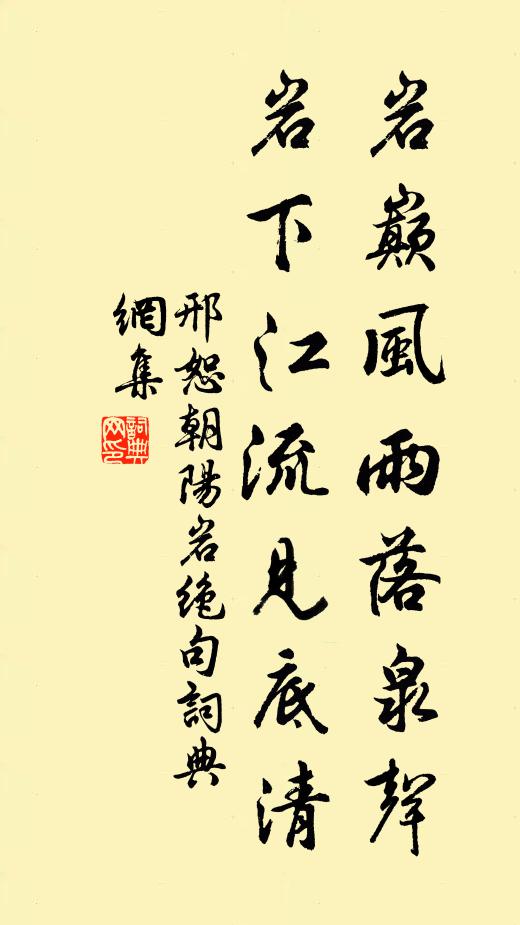 岩巔風雨落泉聲
岩下江流見底清
邢恕朝陽岩绝句詞典
網集
詞典
网印